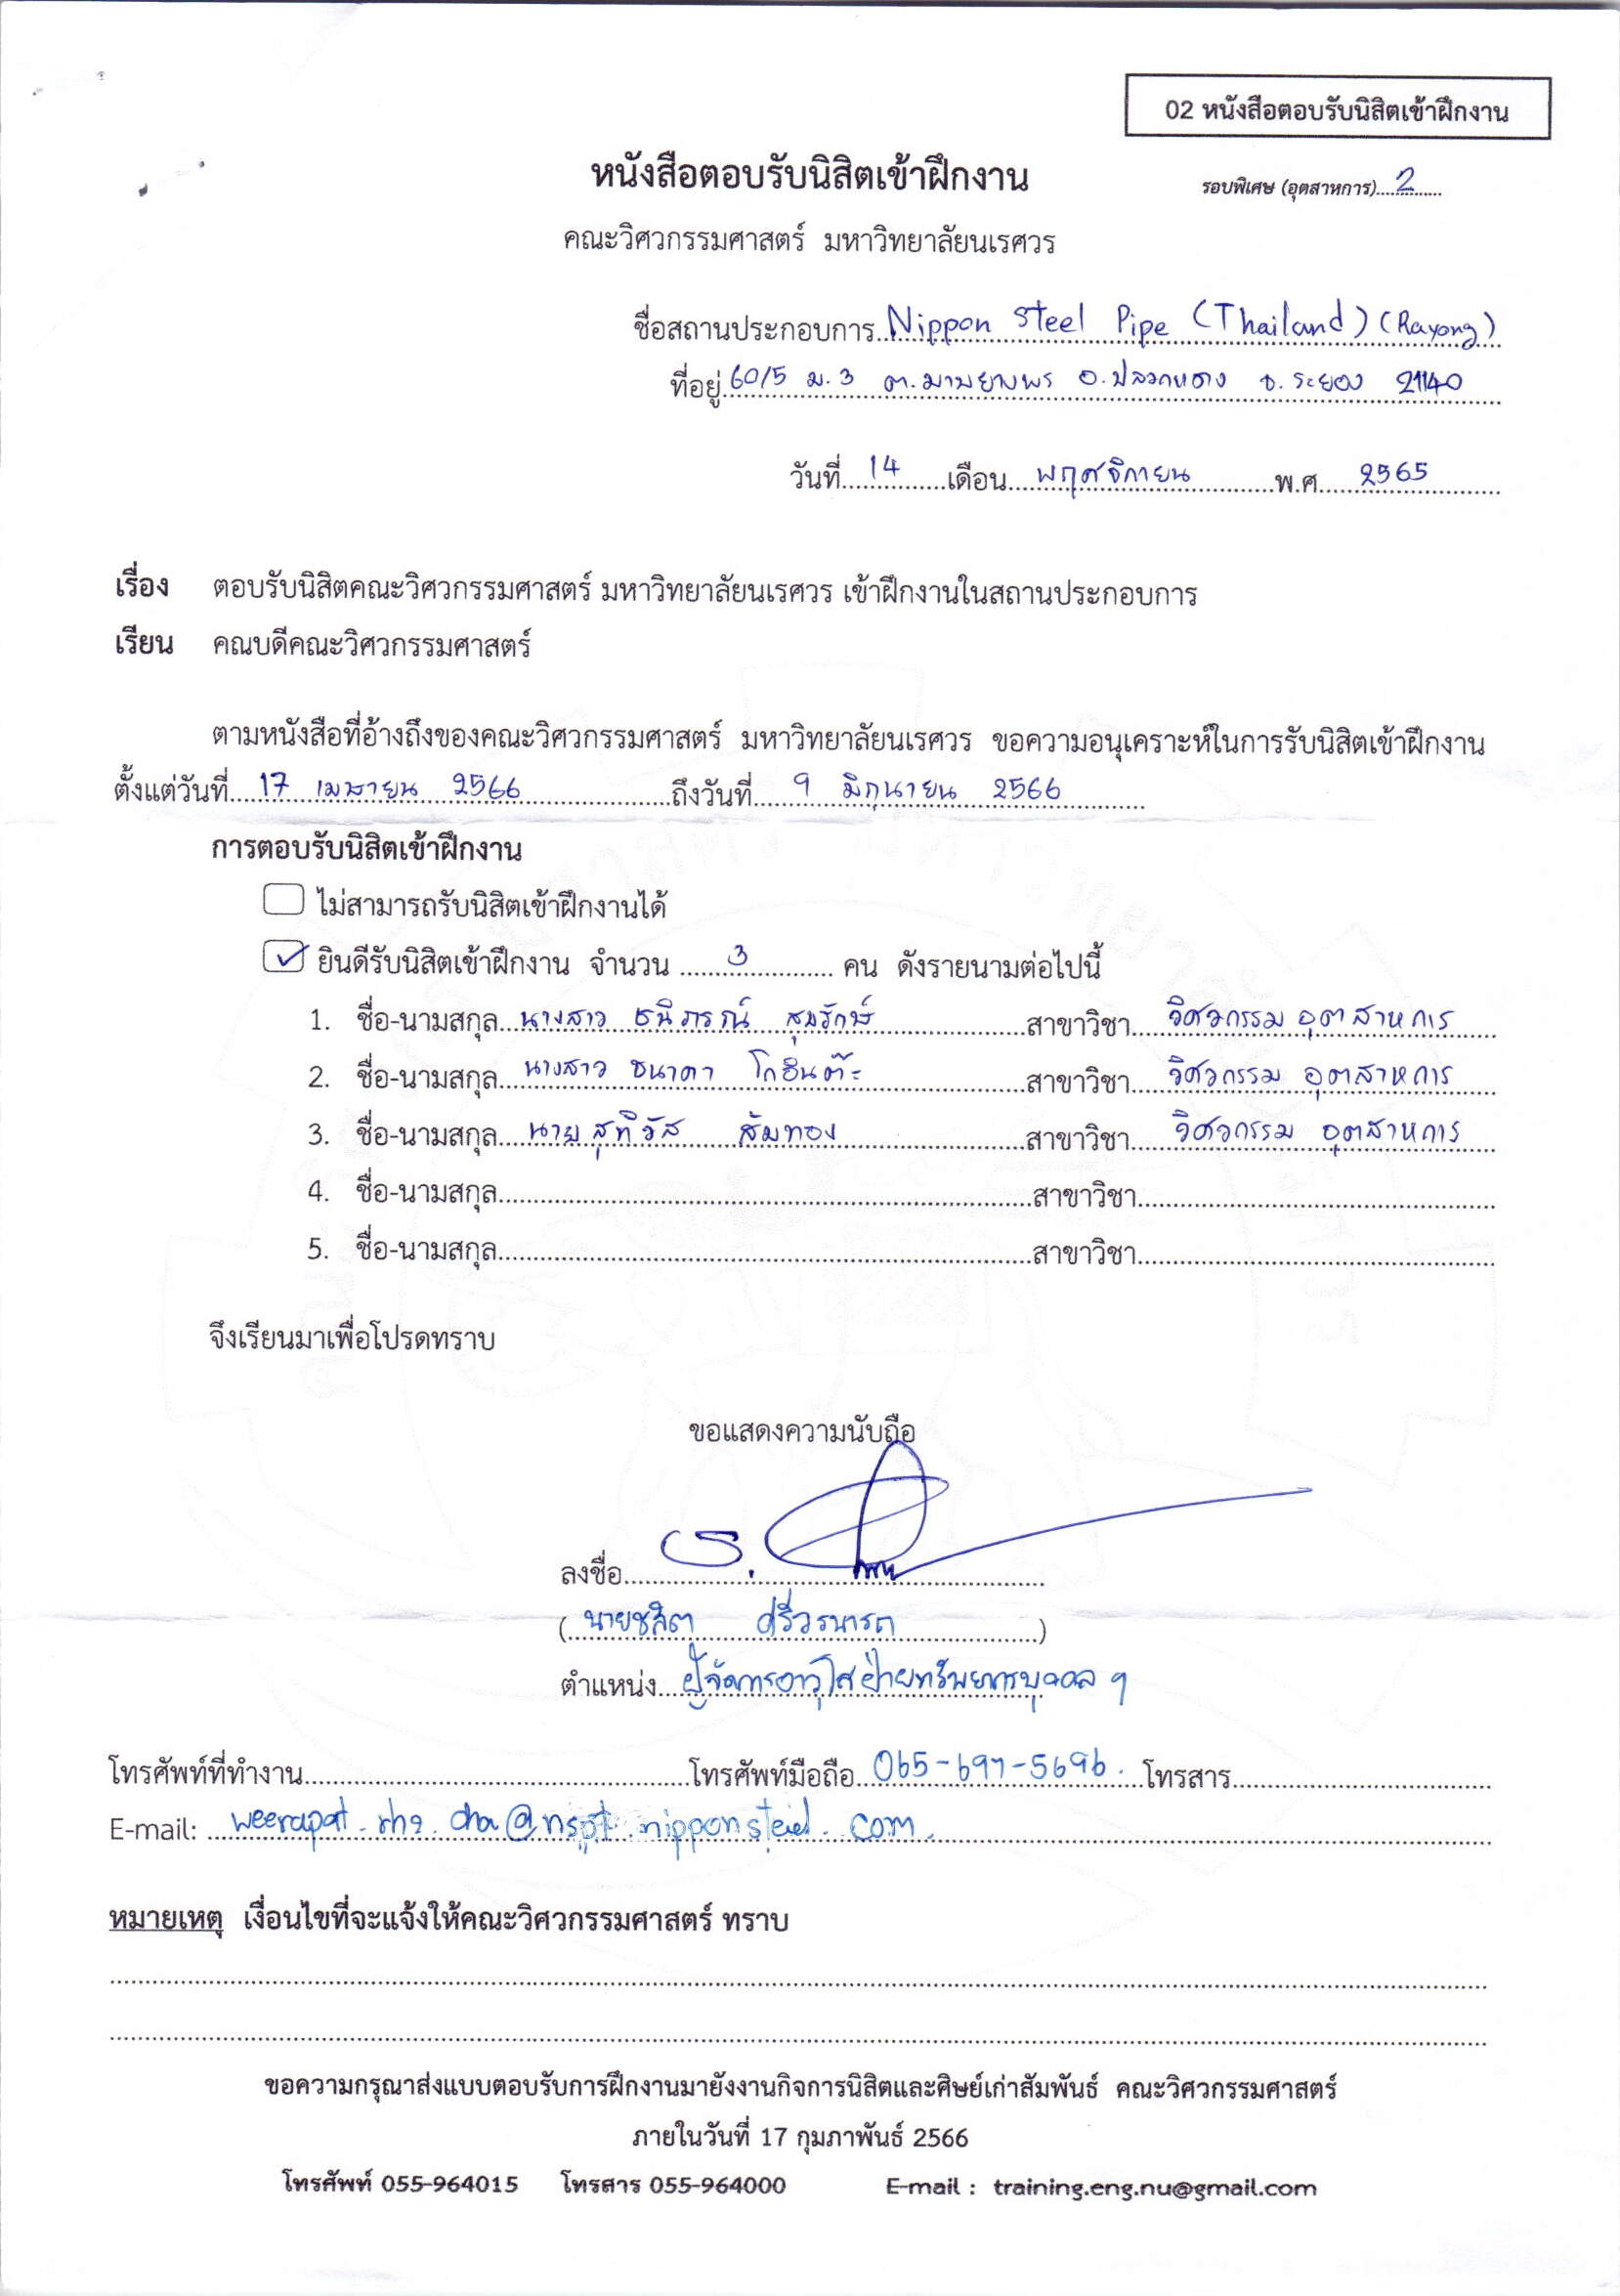 02 หนังสือตอบรับนิสิตเข้าฝึกงาน
หนังสือตอบรับนิสิตเข้าฝึกงาน
รอบพิเศษ (อุตสาหการ) 2
คณะวิศวกรรมศาสตร์ มหาวิทยาลัยนเรศวร
ชื่อสถานประกอบการ Nippon Steel Pipe (Thailand) (Rayong)
ที่อยู่ 60/5 ม.3 ต.มาบยางพร อ.ปลวกแดง จ.ระยอง 21140
วันที่ 14 เดือน พฤศจิกายน พ.ศ. 2565
เรื่อง ตอบรับนิสิตคณะวิศวกรรมศาสตร์ มหาวิทยาลัยนเรศวร เข้าฝึกงานในสถานประกอบการ
เรียน คณบดีคณะวิศวกรรมศาสตร์
ตามหนังสือที่อ้างถึงของคณะวิศวกรรมศาสตร์ มหาวิทยาลัยนเรศวร ขอความอนุเคราะห์ในการรับนิสิตเข้าฝึกงาน
ตั้งแต่วันที่ 17 เมษายน 2566 ถึงวันที่ 9 มิถุนายน 2566
การตอบรับนิสิตเข้าฝึกงาน
ไม่สามารถรับนิสิตเข้าฝึกงานได้
ยินดีรับนิสิตเข้าฝึกงาน จำนวน 3 คน ดังรายนามต่อไปนี้
1. ชื่อ-นามสกุล นางสาว ธนิภรณ์ สุมรักษ์ สาขาวิชา วิศวกรรม อุตสาหการ
2. ชื่อ-นามสกุล นางสาว ธนาดา โกอินต๊ะ สาขาวิชา วิศวกรรม อุตสาหการ
3. ชื่อ-นามสกุล นาย สุทิวัส ส้มทอง สาขาวิชา วิศวกรรม อุตสาหการ
4. ชื่อ-นามสกุล สาขาวิชา
5. ชื่อ-นามสกุล สาขาวิชา
จึงเรียนมาเพื่อโปรดทราบ
ขอแสดงความนับถือ
ลงชื่อ
(นายชลิต ศรีวรนารถ)
ตำแหน่ง ผู้จัดการอาวุโสฝ่ายทรัพยากรบุคคล ฯ
โทรศัพท์ที่ทำงาน โทรศัพท์มือถือ 065-697-5696 โทรสาร
E-mail: nipponsteel.com
หมายเหตุ เงื่อนไขที่จะแจ้งให้คณะวิศวกรรมศาสตร์ ทราบ
ขอความกรุณาส่งแบบตอบรับการฝึกงานมายังงานกิจการนิสิตและศิษย์เก่าสัมพันธ์ คณะวิศวกรรมศาสตร์
ภายในวันที่ 17 กุมภาพันธ์ 2566
โทรศัพท์ 055-964015 โทรสาร 055-964000 E-mail : training.eng.nu@gmail.com